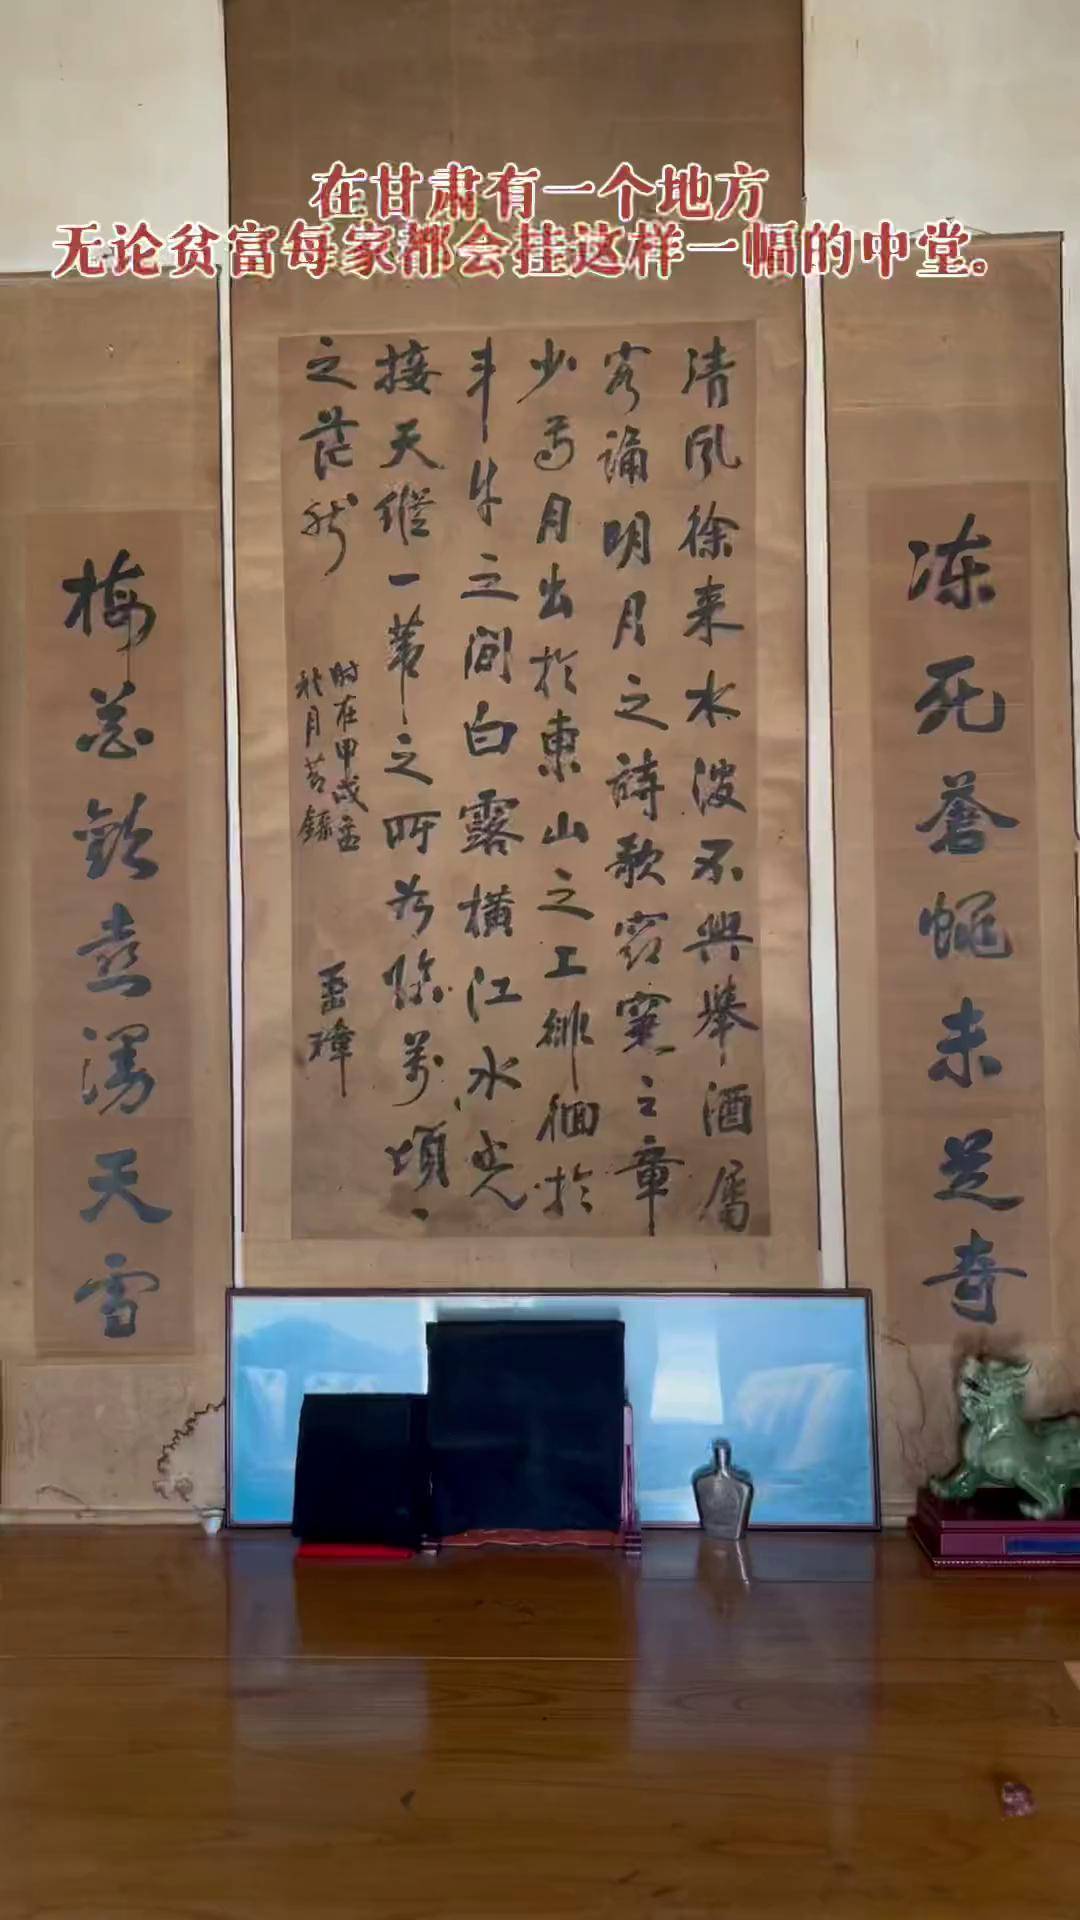 在甘肃有一个地方
无论贫富每家都会挂这样一幅的中堂。
冻死苍蝇未足奇
清風徐来水波不興舉酒属
客誦明月之詩歌窈窕之章
少焉月出於東山之上徘徊於
斗牛之间白露橫江水光
接天縱一葦之所如凌萬頃
之茫然
时在甲戌孟
秋月
梅花歡喜漫天雪